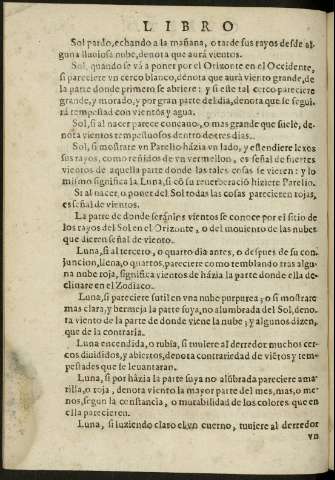 LIBRO
Sol pardo, echando a la mañana, o tarde sus rayos desde al-
guna lluuiosa nube, denota que aurá vientos.
Sol, quando se vá a poner por el Orizonte en el Occidente,
si pareciere vn cerco blanco, denota que aurá viento grande, de
la parte donde primero se abriere: y si este tal cerco pareciere
grande, y morado, y por gran parte del dia, denota que se segui-
rá tempestad con vientos y agua.
Sol, si al nacer parece concauo, o mas grande que suele, de-
nota vientos tempestuosos dentro de tres dias.
Sol, si mostrare vn Parelio házia vn lado, y estendiere lexos
sus rayos, como teñidos de vn vermellon, es señal de fuertes
vientos de aquella parte donde las tales cosas se vieren: y lo
mismo significa la Luna, si cõ su reuerberació hiziere Parelio.
Si al nacer, o poner del Sol todas las cosas parecieren rojas,
es señal de vientos.
La parte de donde seránlos vientos se conoce por el sitio de
los rayos del Sol en el Orizonte, o del mouiento de las nubes
que dieren señal de viento.
Luna, si al tercero, o quarto dia antes, o despues de su con-
juncion, llena, o quartos, pareciere como temblando tras algu-
na nube roja, significa vientos de házia la parte donde ella de-
clinare en el Zodiaco.
Luna, si pareciere sutil en vna nube purpurea, o si mostrare
mas clara, y bermeja la parte suya, no alumbrada del Sol, deno-
ta viento de la parte de donde viene la nube; y algunos dizen,
que de la contraria.
Luna encendida, o rubia, si tuuiere al derredor muchos cer-
cos diuididos, y abiertos, denota contrariedad de viẽtos y tem-
pestades que se leuantaran.
Luna, si por házia la parte suya no alũbrada pareciere ama-
rilla, o roja, denota viento la mayor parte del mes, mas, o me-
nos, segun la constancia, o mutabilidad de los colores que en
ella parecieren.
Luna, si luziendo claro el vn cuerno, tuuiere al derredor
vn